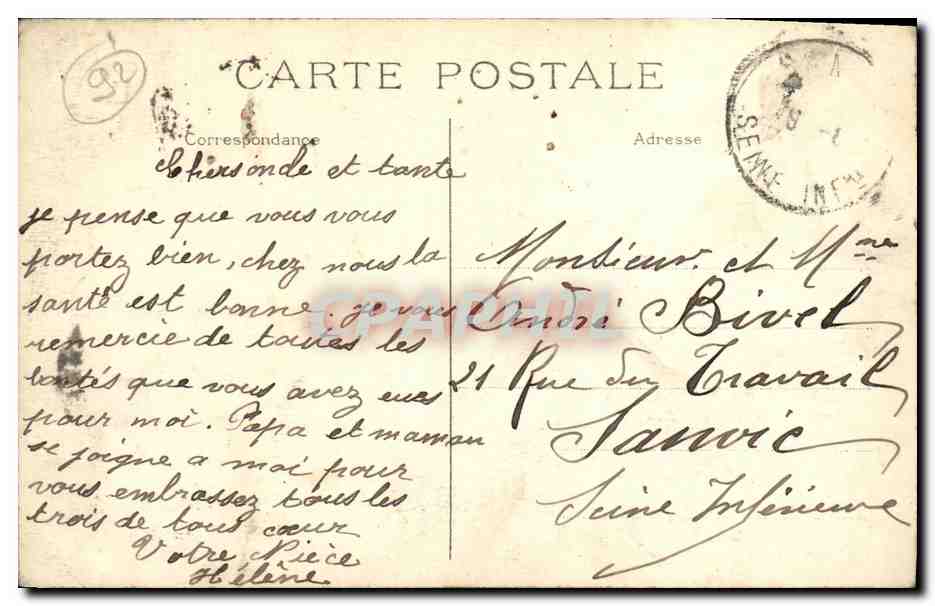 92
CARTE POSTALE
Correspondance
Adresse
SEINE INFRE
Chers onde et tante
je pense que vous vous
portez bien, chez nous la
santé est bonne. je vous
remercie de toutes les
bontés que vous avez eues
pour moi. Papa et maman
se joigne a moi pour
vous embrassez tous les
trois de tous cœur
Votre Nièce
Hélène
Monsieur et Mme
André Bivel
21 Rue du Travail
Sanvic
Seine Inférieure
CPAPHIL